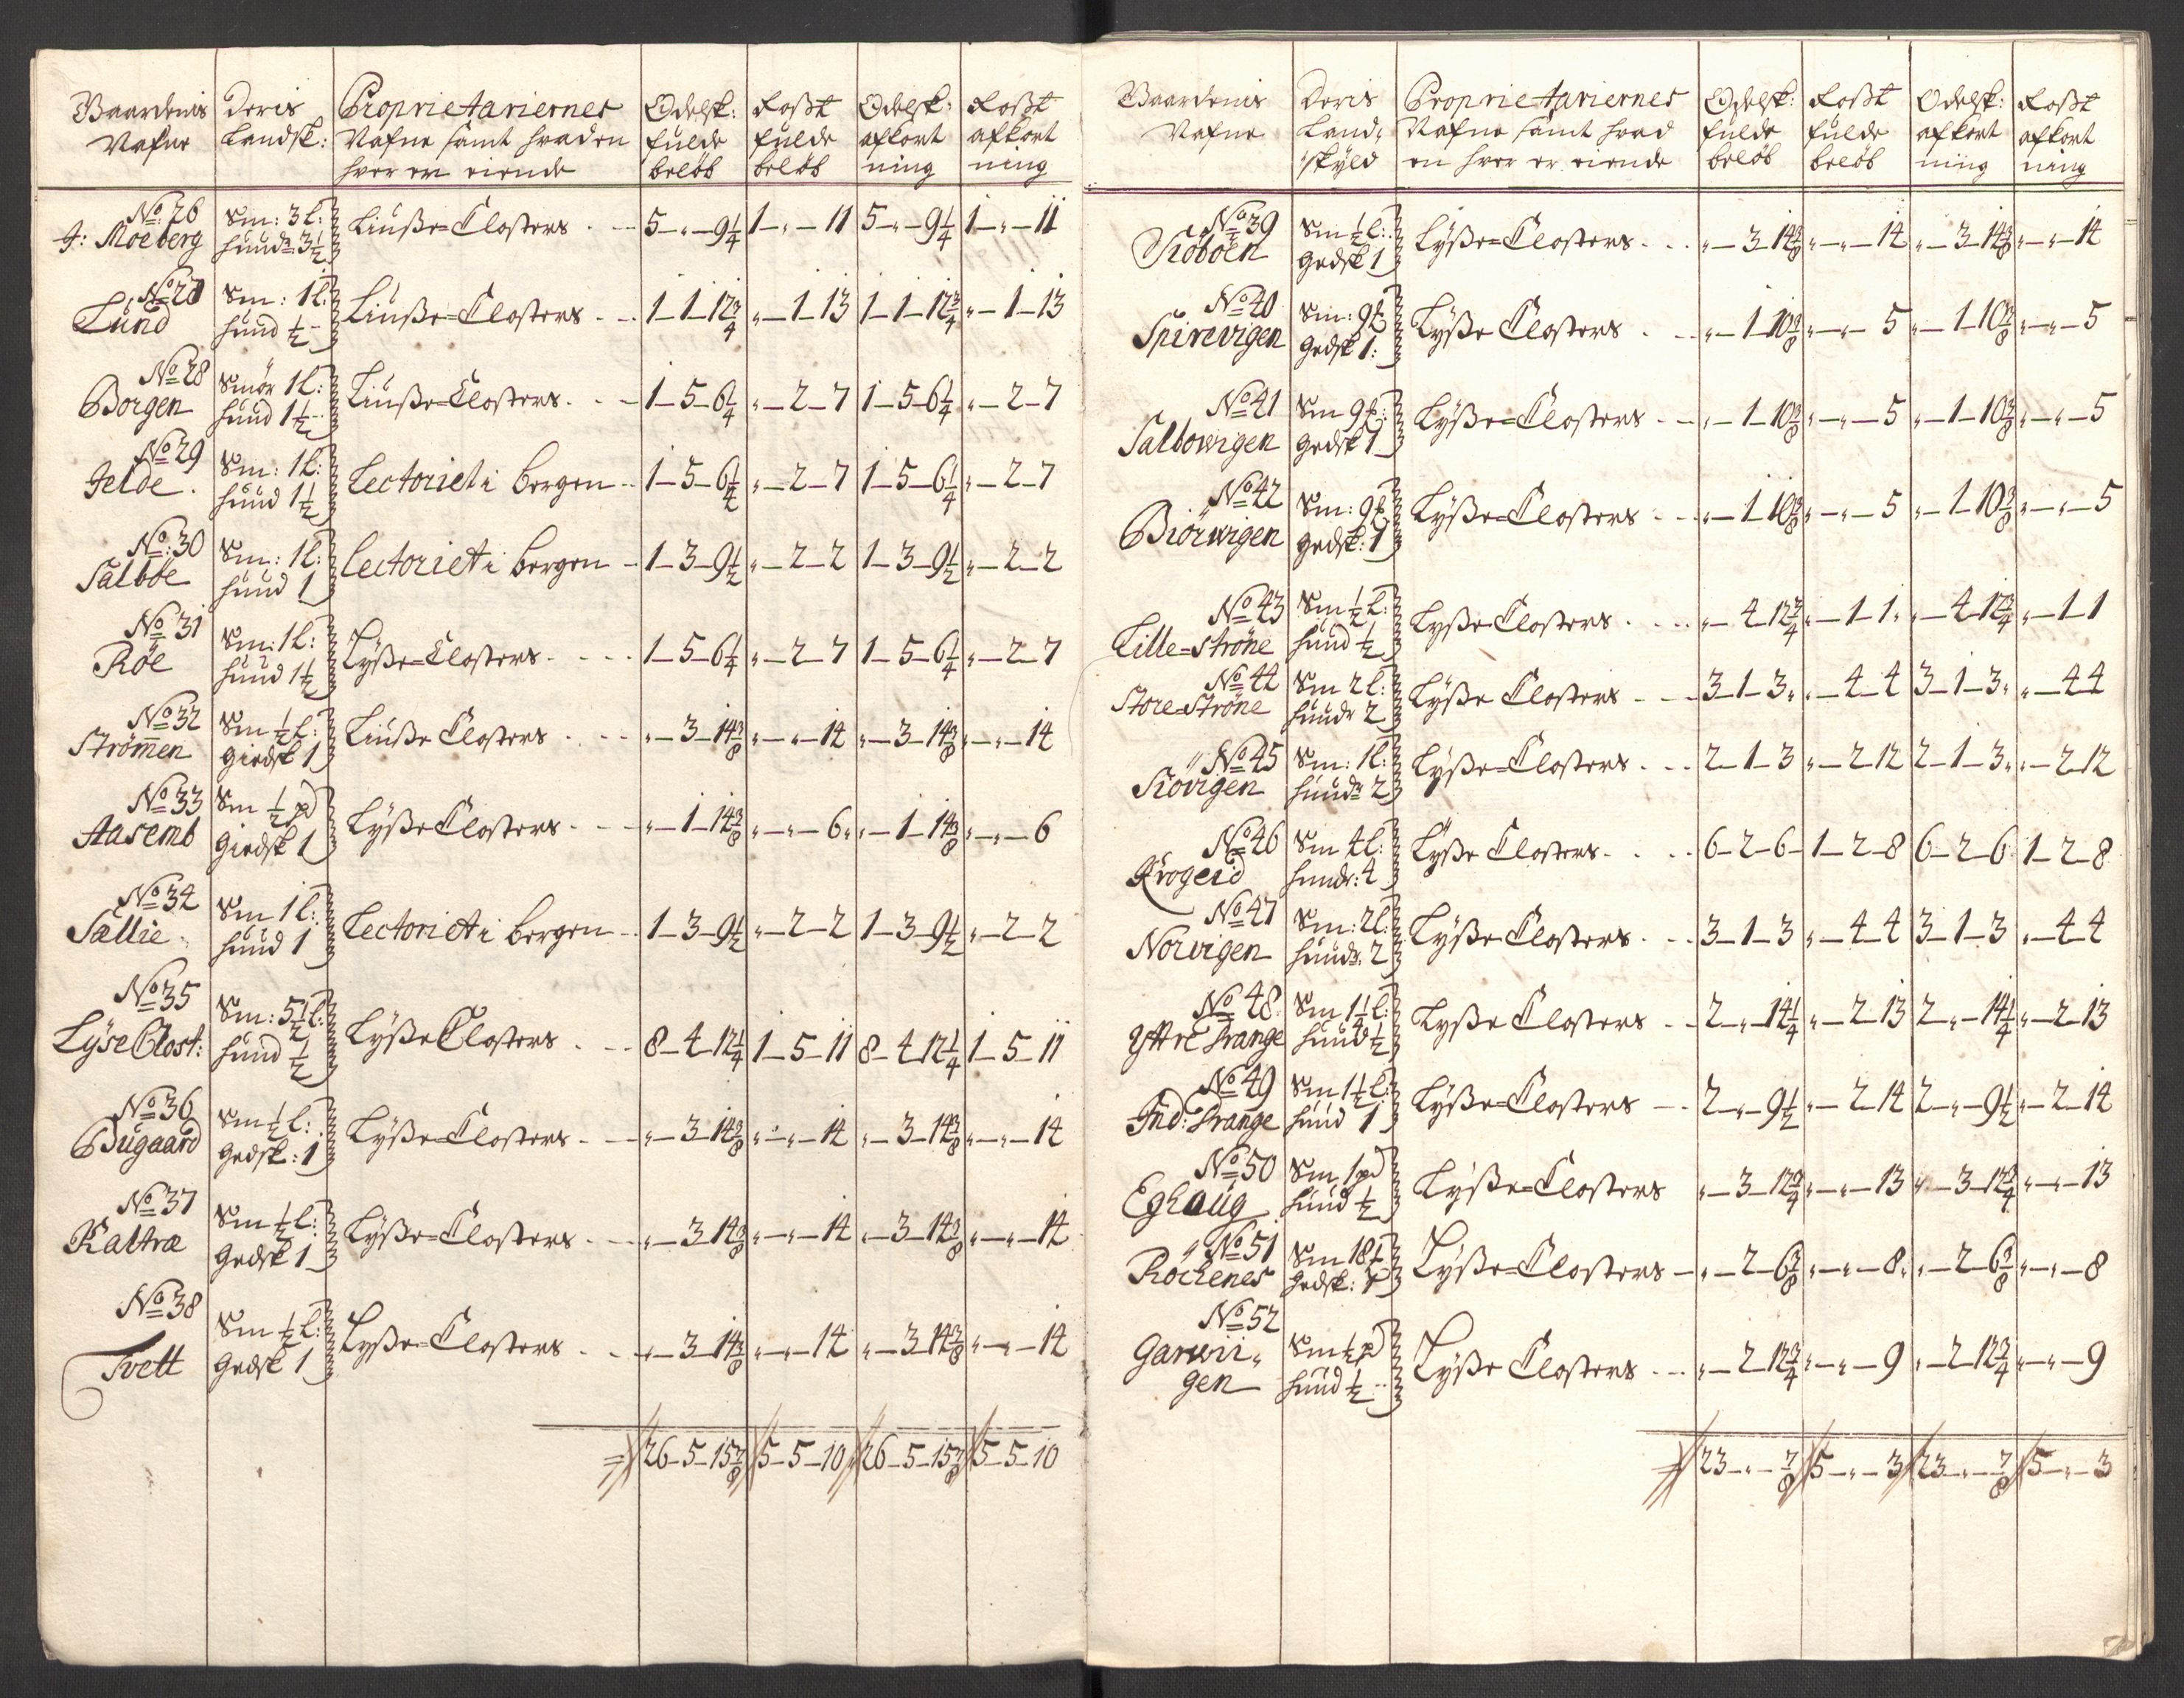 Gaardenis Nafne | Deris Landsk: | Proprietariernes Nafne samt hvad en hver er eiende | Odelsk: fulde beløb | Roßt fulde beløb | Odelsk: afkortning | Roßt afkortning
No: 26 J: Moeberg | Sm: 3 l: huude 3½ | Liuße=Closters | 5 - „ - 9¼ | 1 - „ - 11 | 5 - „ - 9¼ | 1 - „ - 11
No 27 Lund | Sm: 1 l: huud ½ | Liuße=Closters | 1 - 1 - 12¾ | „ - 1 - 13 | 1 - 1 - 12¾ | „ - 1 - 13
No 28 Borgen | Smör 1 l: huud 1½ | Liuße=Closters | 1 - 5 - 6¼ | „ - 2 - 7 | 1 - 5 - 6¼ | „ - 2 - 7
No 29 Jelde | Sm: 1 l: huud 1½ | Lectoriet i bergen | 1 - 5 - 6¼ | „ - 2 - 7 | 1 - 5 - 6¼ | „ - 2 - 7
No: 30 Salböe | Sm: 1 l: huud 1 | Lectoriet i bergen | 1 - 3 - 9½ | „ - 2 - 2 | 1 - 3 - 9½ | „ - 2 - 2
No 31 Röe | Sm: 1 l: huud 1½ | Lyße=Closters | 1 - 5 - 6¼ | „ - 2 - 7 | 1 - 5 - 6¼ | „ - 2 - 7
No 32 Strömen | Sm ½ l: giedsk 1 | Liuße Closters | „ - 3 - 14⅜ | „ - „ - 14 | „ - 3 - 14⅜ | „ - „ - 14
No 33 Aasemb | Sm ½ pd giedsk 1 | Lyße Closters | „ - 1 - 14⅜ | „ - „ - 6 | „ - 1 - 14⅜ | „ - „ - 6
No 34 Sællie | Sm 1 l: huud 1 | Lectoriet i bergen | 1 - 3 - 9½ | „ - 2 - 2 | 1 - 3 - 9½ | „ - 2 - 2
No 35 Lyse Clost: | Sm: 5½ l: huud ½ | Lyße Closters | 8 - 4 - 12¼ | 1 - 5 - 11 | 8 - 4 - 12¼ | 1 - 5 - 11
No 36 Bugaard | Sm ½ l: gedsk: 1 | Lyße=Closters | „ - 3 - 14⅜ | „ - „ - 14 | „ - 3 - 14⅜ | „ - „ - 14
No 37 Kaltræ | Sm ½ l: gedsk 1 | Lyße=Closters | „ - 3 - 14⅜ | „ - „ - 14 | „ - 3 - 14⅜ | „ - „ - 14
No 38 Tvett | Sm ½ l: gedsk 1 | Lyße=Closters | „ - 3 - 14⅜ | „ - „ - 14 | „ - 3 - 14⅜ | „ - „ - 14
26 - 5 - 15⅞ | 5 - 5 - 10 | 26 - 5 - 15⅞ | 5 - 5 - 10
Gaardenis Nafne | Deris Landskyld | Proprietariernes Nafne samt hvad en hver er eiende | Odelsk: fulde beløb | Roßt fulde beløb | Odelsk: afkortning | Roßt afkortning
No 39 Siöböen | Sm ½ l: gedsk 1 | Lyße=Closters | „ - 3 - 14⅜ | „ - „ - 14 | „ - 3 - 14⅜ | „ - „ - 14
No 40 Spirevigen | Sm: 9 gedsk 1: | Lyße Closters | „ - 1 - 10⅜ | „ - „ - 5 | „ - 1 - 10⅜ | „ - „ - 5
No 41 Salbowigen | Sm 9 gedsk 1 | Lyße=Closters | „ - 1 - 10⅜ | „ - „ - 5 | „ - 1 - 10⅜ | „ - „ - 5
No 42 Biörwigen | Sm: 9 gedsk: 1 | Lyße=Closters | „ - 1 - 10⅜ | „ - „ - 5 | „ - 1 - 10⅜ | „ - „ - 5
No 43 Lille=ströne | Sm ½ l: huud ½ | Lyße Closters | „ - 4 - 12¾ | „ - 1 - 1 | „ - 4 - 12¾ | „ - 1 - 1
No 44 Store=Ströne | Sm 2 l: huude 2 | Lyße Closters | 3 - 1 - 3 | „ - 4 - 4 | 3 - 1 - 3 | „ - 4 - 4
No 45 Siövigen | Sm: 1 l: huude 2 | Lyße=Closters | 2 - 1 - 3 | „ - 2 - 12 | 2 - 1 - 3 | „ - 2 - 12
No 46 Krogeid | Sm 4 l: huude: 4 | Lyße Closters | 6 - 2 - 6 | 1 - 2 - 8 | 6 - 2 - 6 | 1 - 2 - 8
No 47 Norvigen | Sm: 2 l: huude: 2 | Lyße Closters | 3 - 1 - 3 | „ - 4 - 4 | 3 - 1 - 3 | „ - 4 - 4
No 48 Yttre Drange | Sm 1½ l: huud ½ | Lyße Closters | 2 - „ - 14¼ | „ - 2 - 13 | 2 - „ - 14¼ | „ - 2 - 13
No 49 Ind: Drange | Sm 1½ l: huud 1 | Lyße=Closters | 2 - „ - 9½ | „ - 2 - 14 | 2 - „ - 9½ | „ - 2 - 14
No 50 Eghaug | Sm 1 pd huud ½ | Lyße=Closters | „ - 3 - 12¾ | „ - „ - 13 | „ - 3 - 12¾ | „ - „ - 13
No 51 Röckenes | Sm 18 gedsk: 1 | Lyße=Closters | „ - 2 - 6⅜ | „ - „ - 8 | „ - 2 - 6⅜ | „ - „ - 8
No 52 Garwiigen | Sm ½ pd huud ½ | Lyße Closters | „ - 2 - 12¾ | „ - „ - 9 | „ - 2 - 12¾ | „ - „ - 9
23 - „ - ⅞ | 5 - „ - 3 | 23 - „ - ⅞ | 5 - „ - 3